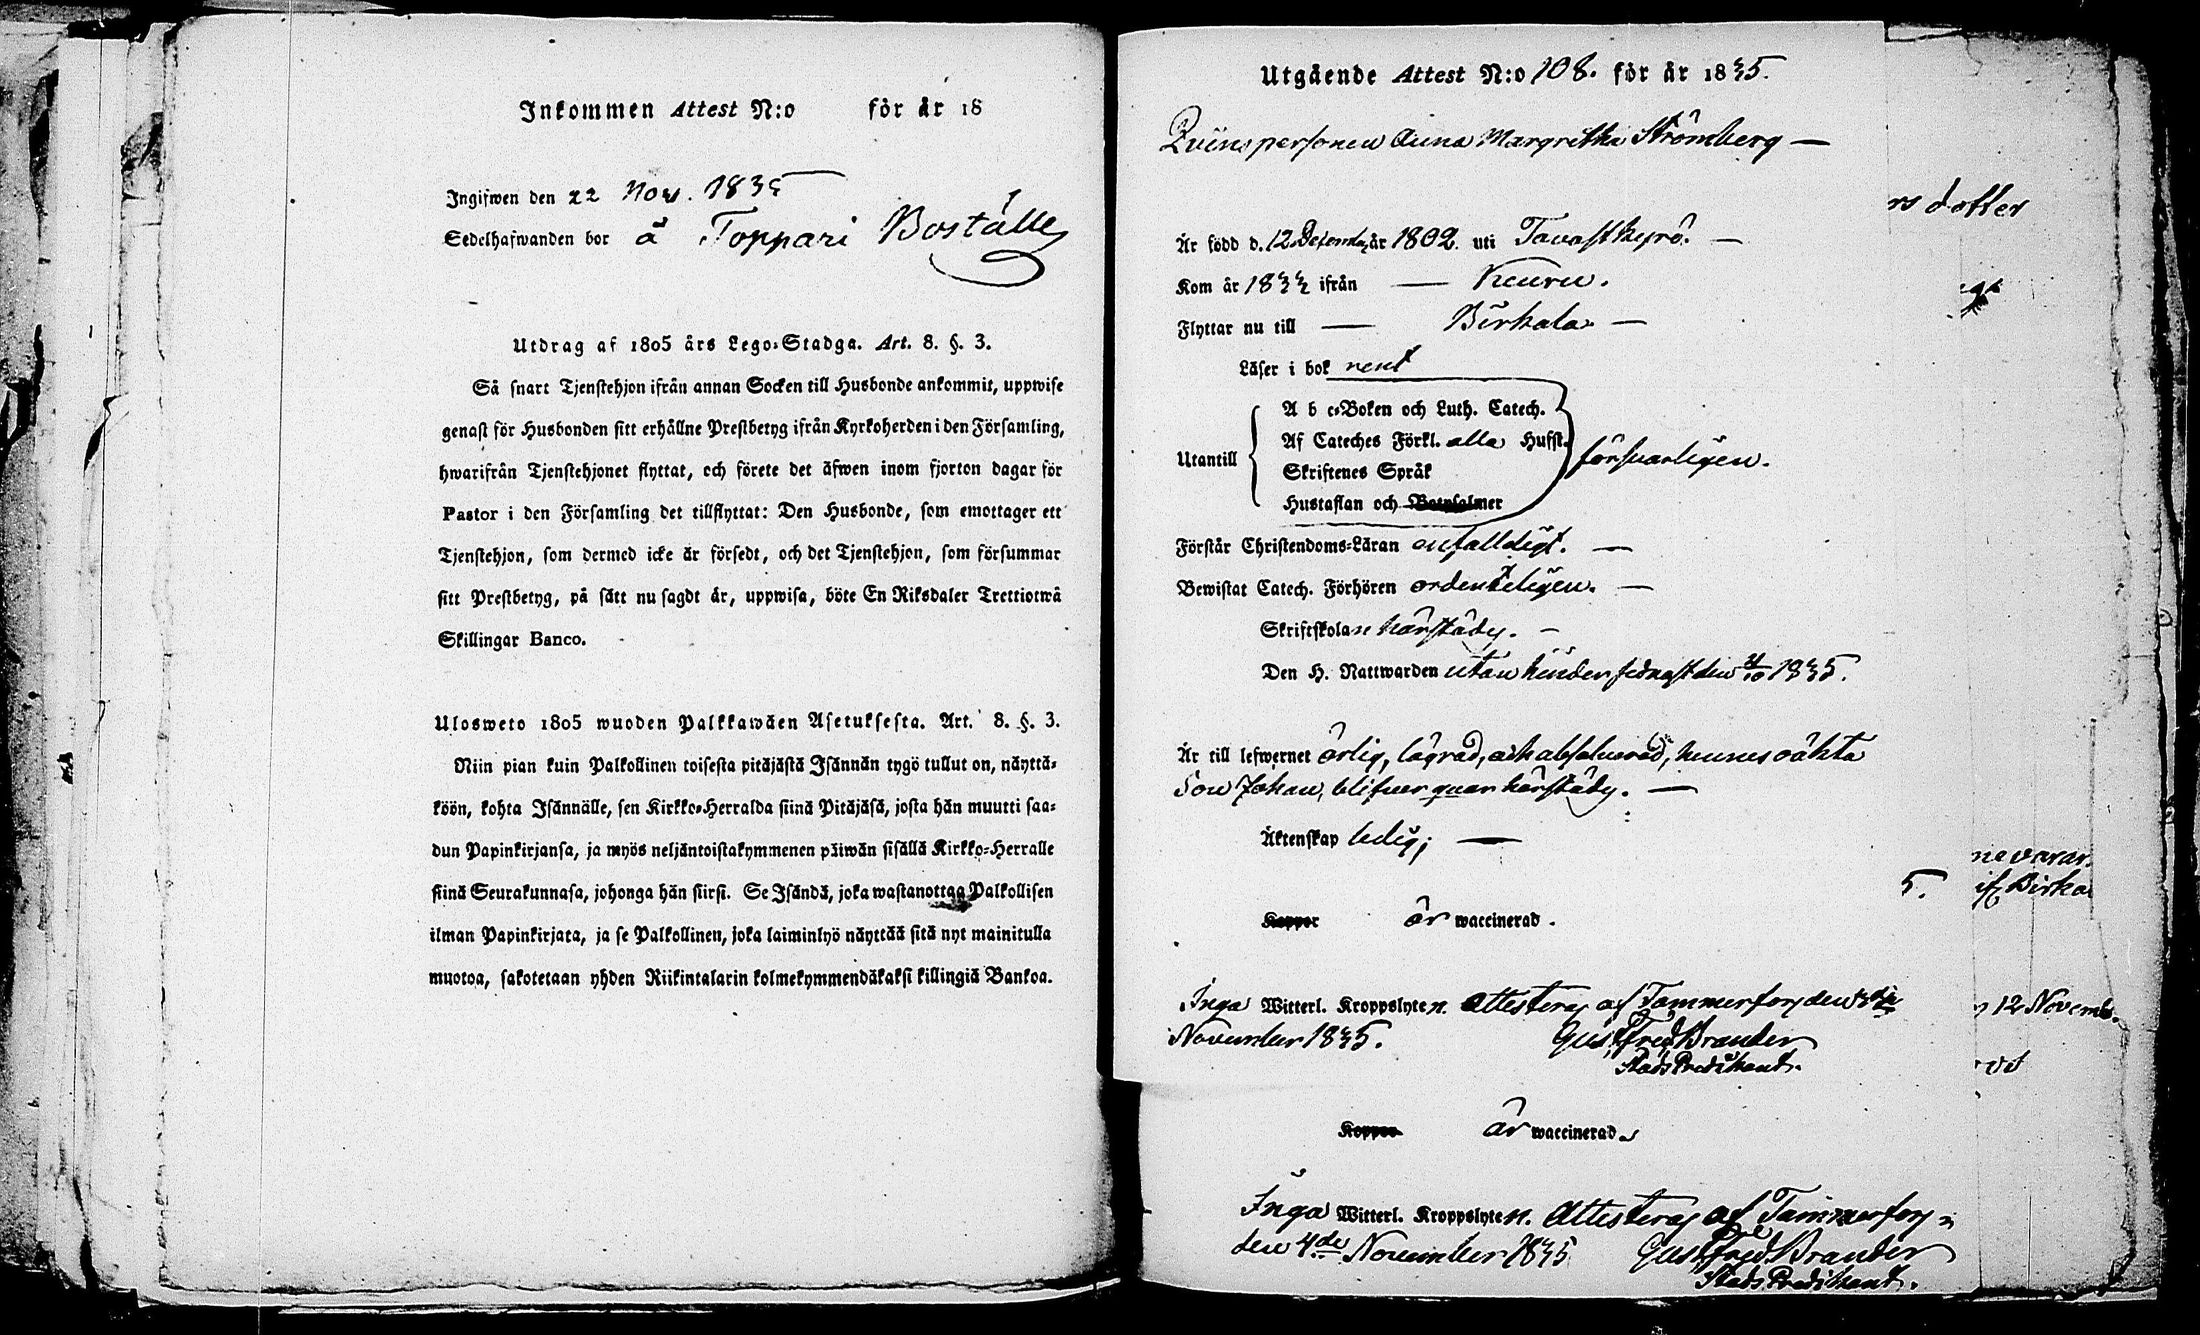 Inkommen Attest N:o för år 18
Ingifwen den 22 Nov. 1835
Sedelhafwanden bor å Toppari Boställe
Utdrag af 1805 års Lego-Stadga. Art. 8. §. 3.
Så snart Tjenstehjon ifrån annan Socken till Husbonde ankommit, uppwise
genast för Husbonden sitt erhållne Prestbetyg ifrån Kyrkoherden i den Församling,
hwarifrån Tjenstehjonet flyttat, och förete det äfwen inom fjorton dagar för
Pastor i den Församling det tillflyttat: Den Husbonde, som emottager ett
Tjenstehjon, som dermed icke är försedt, och det Tjenstehjon, som försummar
sitt Prestbetyg, på sätt nu sagdt är, uppwisa, böte En Riksdaler Trettiotwå
Skillingar Banco.
Ulosweto 1805 wuoden Palkkawäen Asetuksesta. Art. 8. §. 3.
Niin pian kuin Palkollinen toisesta pitäjästä Isännän tygö tullut on, näyttä-
köön, kohta Isännälle, sen Kirkko-Herralda siinä Pitäjäsä, josta hän muutti saa-
dun Papinkirjansa, ja myös neljäntoistakymmenen päiwän sisällä Kirkko-Herralle
siinä Seurakunnasa, johonga hän siirsi. Se Isändä, joka wastanottaa Palkollisen
ilman Papinkirjata, ja se Palkollinen, joka laiminlyö näyttää sitä nyt mainitulla
muotoa, sakotetaan yhden Riikintalarin kolmekymmendäkaksi killingiä Bankoa.
Utgående Attest N:o 108. för år 1835.
Qvinspersonen Anna Margretha Strömberg
Är född d. 12 Decemb. år 1802. uti Tavastkyrö.
Kom år 1833 ifrån Keuru.
Flyttar nu till Birkala
Läser i bok rent
Utantill
A b c-Boken och Luth. Catech.
Af Cateches Förkl. alla Hufst.
Skriftenes Språk
Hustaflan och Botpsalmer
försvarligen.
Förstår Christendoms-Läran enfalldigt.
Bewistat Catech. Förhören ordenteligen.
Skriftskolan härstädes.
Den H. Nattwarden utan hinder sednast den 1835.
Är till lefwernet ärlig, lägrad, och absolverad, hennes oäkta
Son Johan, blifver qvar härstädes.
Äktenskap ledig;
Koppor är waccinerad.
Inga Witterl. Kroppslyten. Attesteras af Tammerfors den
November 1835. Gust. Fred. Brander
StadsPredikant.
Koppor är waccinerad
Inga Witterl. Kroppslyten. Attesteras af Tammerfors
den 4de November 1835 Gust. Fred. Brander
StadsPredikant.
rs dotter
5.
if. Birka
12 Novemb.